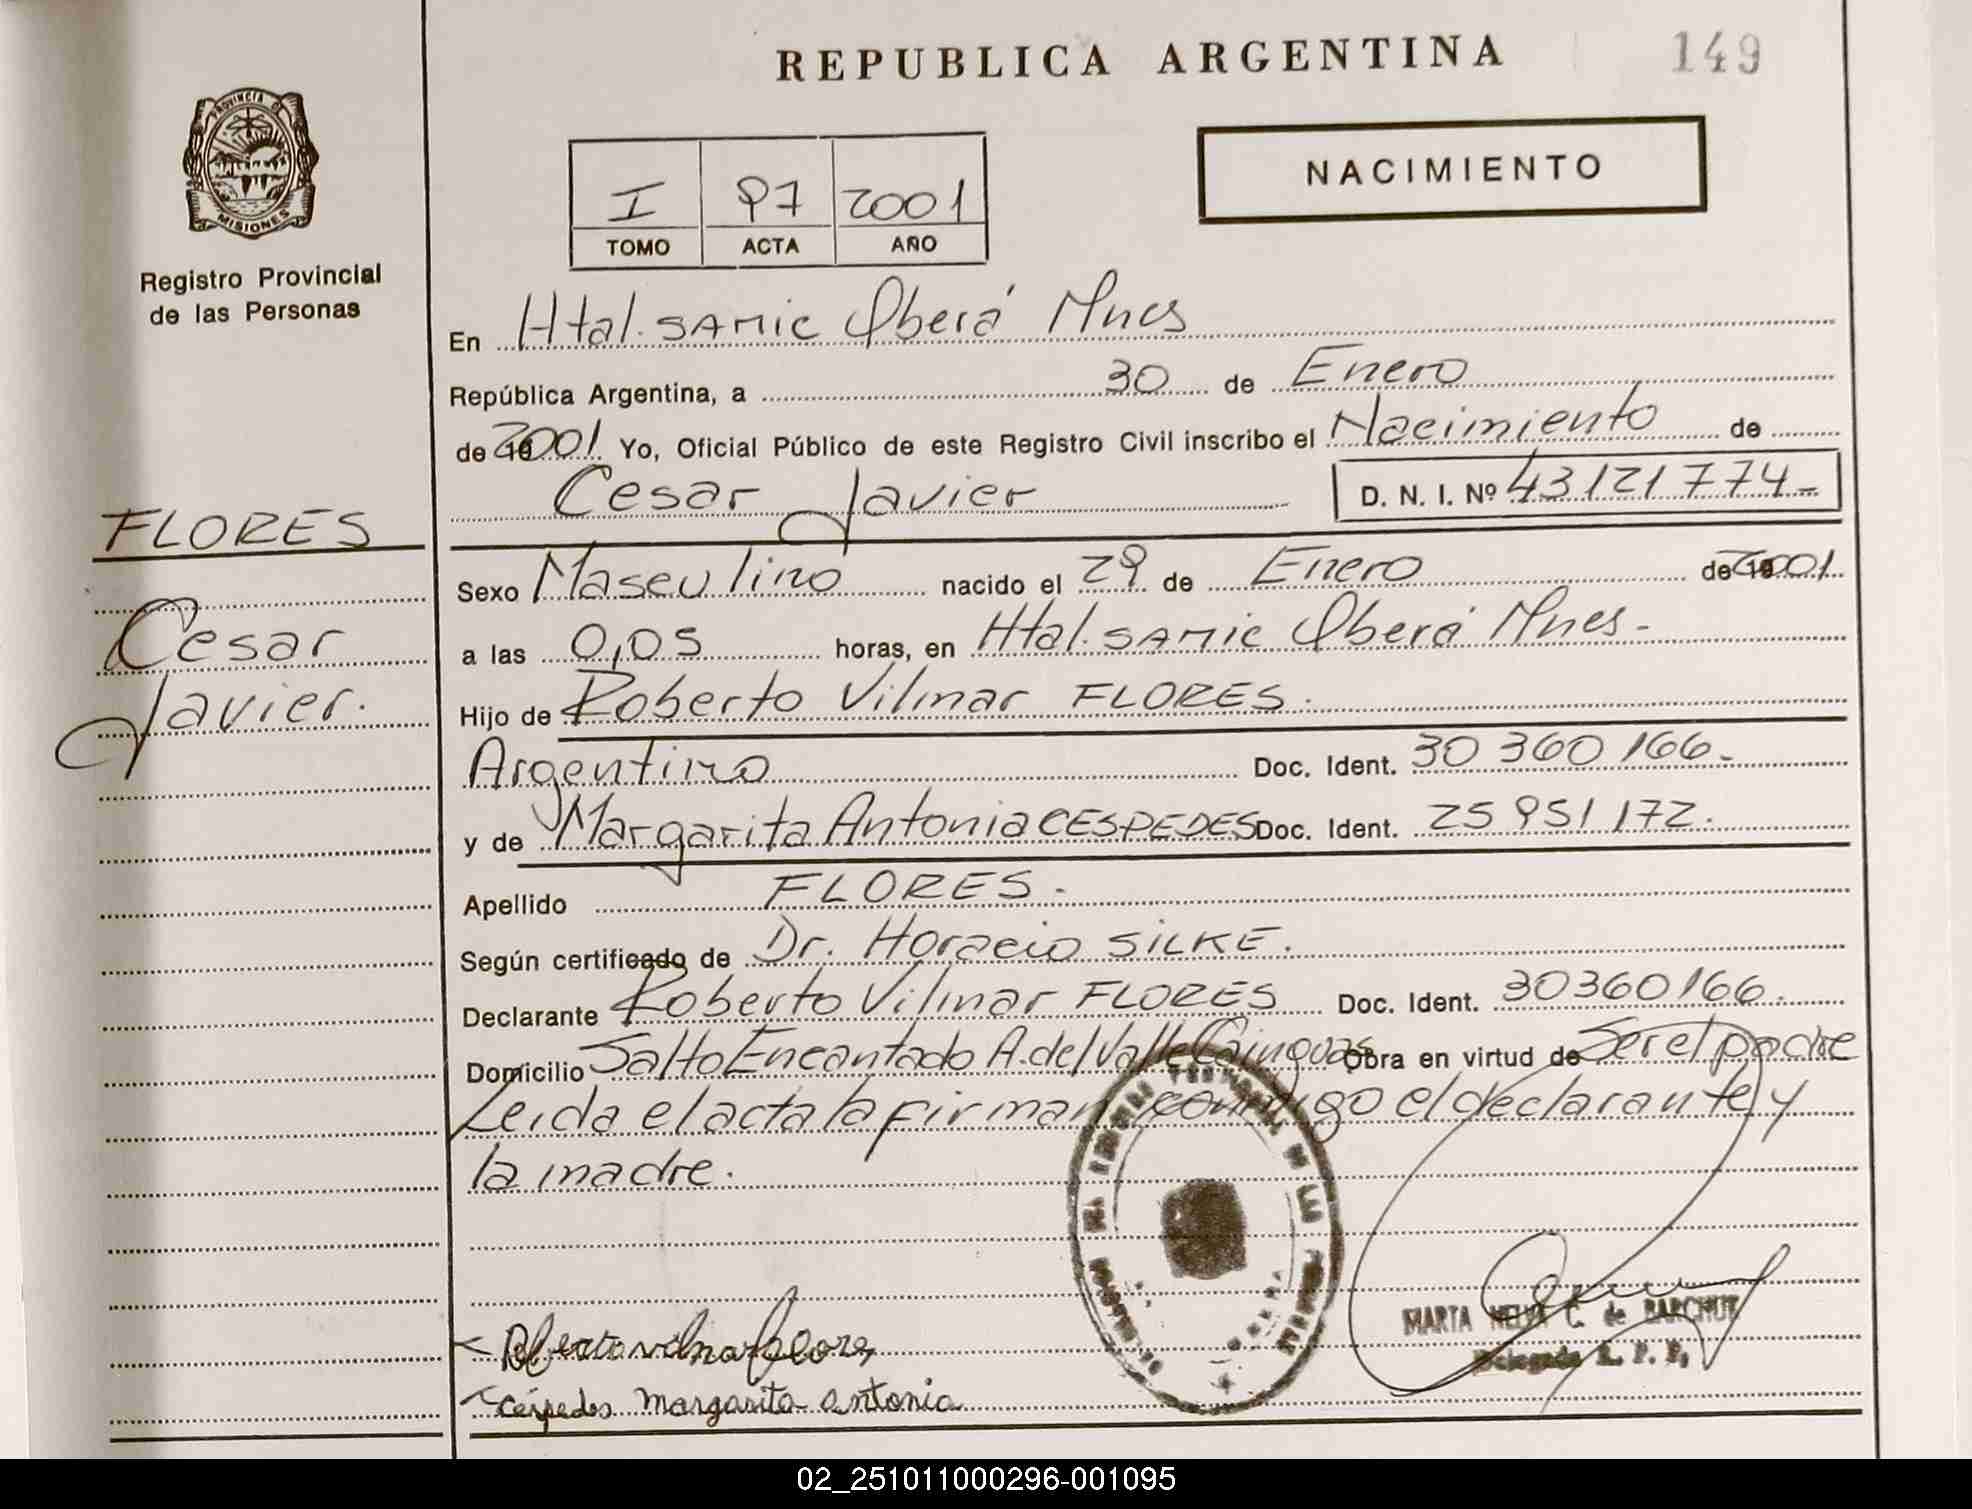 REPUBLICA ARGENTINA
149
PROVINCIA DE
MISIONES
Registro Provincial
de las Personas
NACIMIENTO
I 97 2001
TOMO ACTA AÑO
En Htal. SAMIC Oberá Mnes
República Argentina, a 30 de Enero
de 2001 Yo, Oficial Público de este Registro Civil inscribo el Nacimiento de
Cesar Javier D. N. I. Nº 43121774-
FLORES
Cesar
Javier.
Sexo Masculino nacido el 29 de Enero de 2001
a las 0,05 horas, en Htal. SAMIC Oberá Mnes-
Hijo de Roberto Vilmar FLORES.
Argentino Doc. Ident. 30 360 166-
y de Margarita Antonia CESPEDES Doc. Ident. 25 951 172.
Apellido FLORES.
Según certificado de Dr. Horacio SILKE.
Declarante Roberto Vilmar FLORES Doc. Ident. 30360166.
Domicilio Salto Encantado A. del Valle Cainguas Obra en virtud de Ser el padre
Leida el acta la firman conmigo el declarante y
la madre.
Roberto vilmar flores
Céspedes margarita antonia
MARTA NELVA C. de BARCHUK
Delegada R. P. P.
02_251011000296-001095